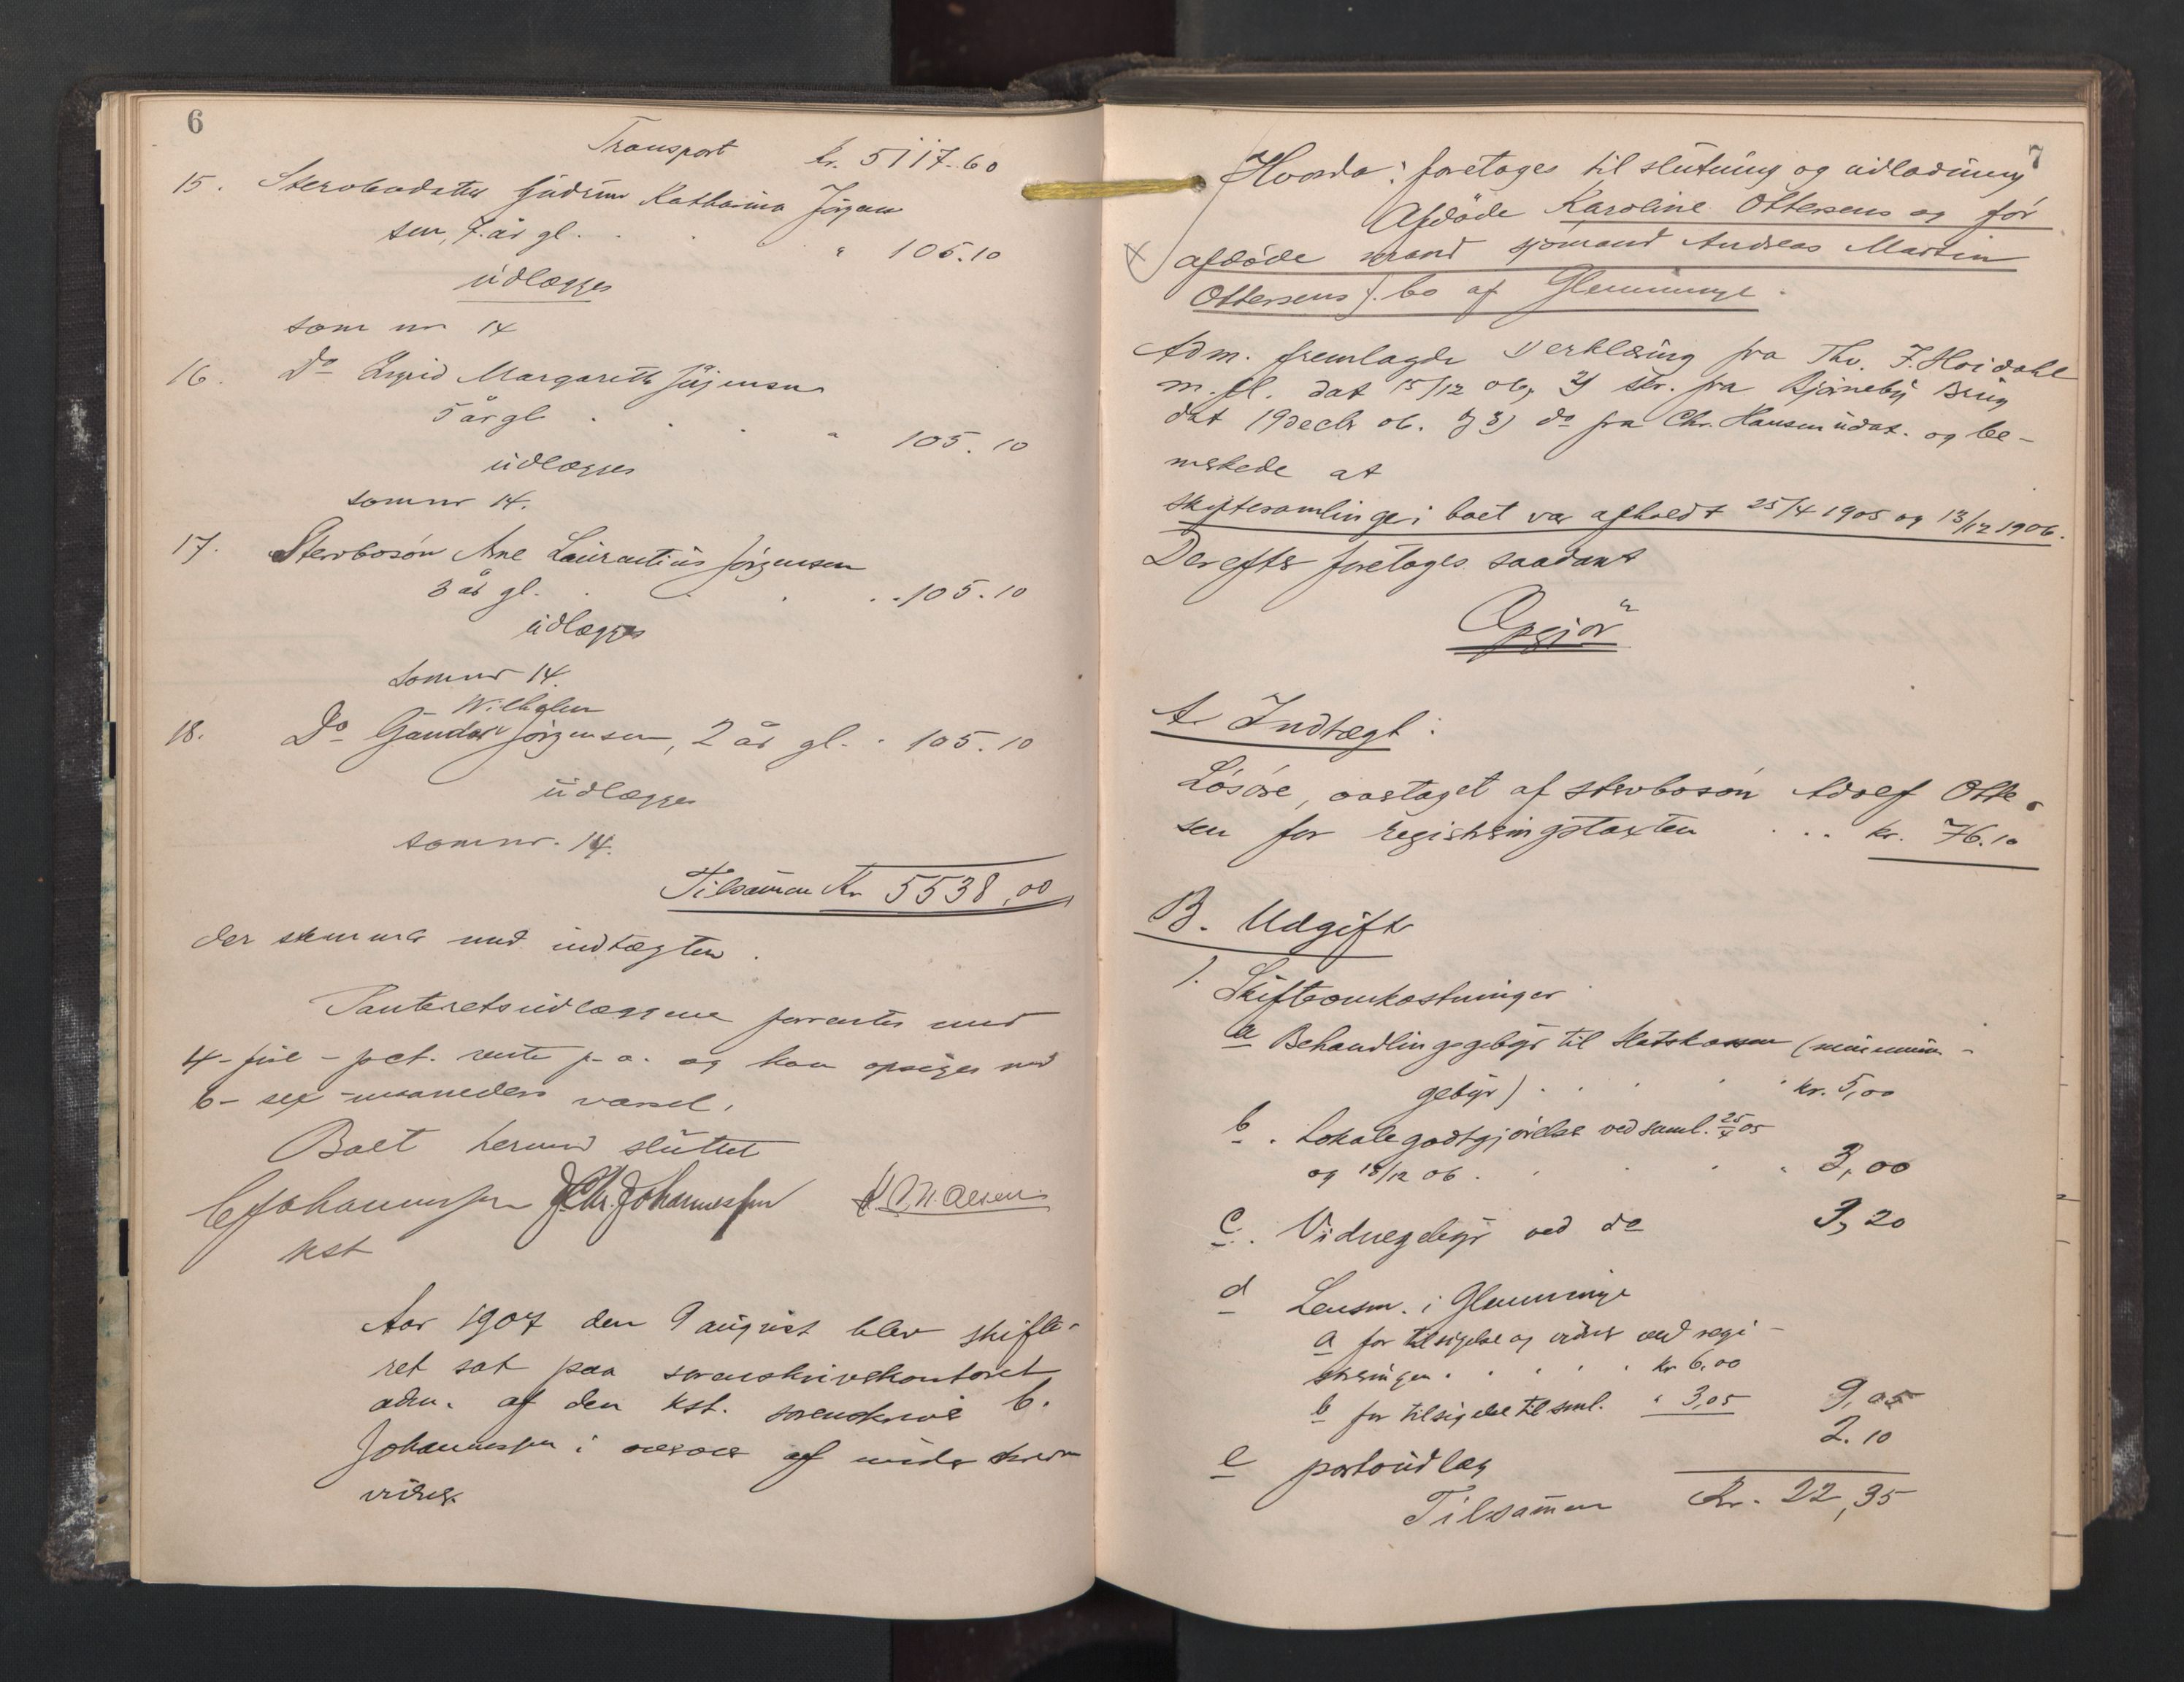 6
Transport kr. 5117.60
15. Stervbodatter Gudrun Katharina Jörgen
sen, 7 år gl. . . . " 105.10
udlægges
som nr 14
16. Do Ingrid Margarethe Jörgensen
5 år gl . . . " 105.10
udlægges
som nr 14.
17. Stervbosön Arne Laurantius Jörgensen
3 år gl. . . . . " 105.10
udlægges
som nr 14.
Wilhelm
18. Do Gundar Jörgensen, 2 år gl. " 105.10
udlægges
som nr. 14.
Tilsammen Kr 5538,00
der stemmer med indtægten.
Panteretsudlæggene forrentes med
4 - fire - pct. rente p. a. og kan opsiges med
6 - sex - maaneders varsel.
Boet hermed sluttet
C Johannessen J. Chr. Johannessen Olsen
kst
Aar 1907 den 9 august blev skifte-
ret sat paa sorenskriverkontoret
adm. af den kst. sorenskriver C.
Johannessen i overvær af undertegnede
vidner.
7
Hvorda: foretoges til slutning og udlodning
Afdöde Karoline Ottersens og før
afdöde mand sjömand Andreas Martin
Ottersens f. bo af Glemminge.
Adm. fremlagde 1) erklæring fra Thv. J. Hoidahl
m. fl. dat 15/12 06, 2) skr. fra Bjørneby Brug
dat 19 decbr 06. og 3) do fra Chr. Hansen udat. og be-
mærkede at
skiftesamlinger i boet var afholdt 25/4 1905 og 13/12 1906.
Derefter foretoges saadant
Opgjör
A. Indtægt:
Lösöre, overtaget af stervbosön Adolf Otter
sen for registreringstaxten . . . kr. 76.10
B. Udgift
1. Skifteomkostninger
a Behandlingsgebyr til Statskassen (minimum-
gebyr) . . . . kr. 5,00
b. Lokalegodtgjörelse ved saml. 25/4 05
og 13/12 06 . . . . " 3,00
c. Vidnegebyr ved do 3,20
d Lensm. i Glemminge
a for tilsigelse og vidner ved regi-
streringen . . . . kr 6.00
b for tilsigelse til saml. " 3,05 9,05
e portoudlæg 2.10
Tilsammen Kr. 22,35